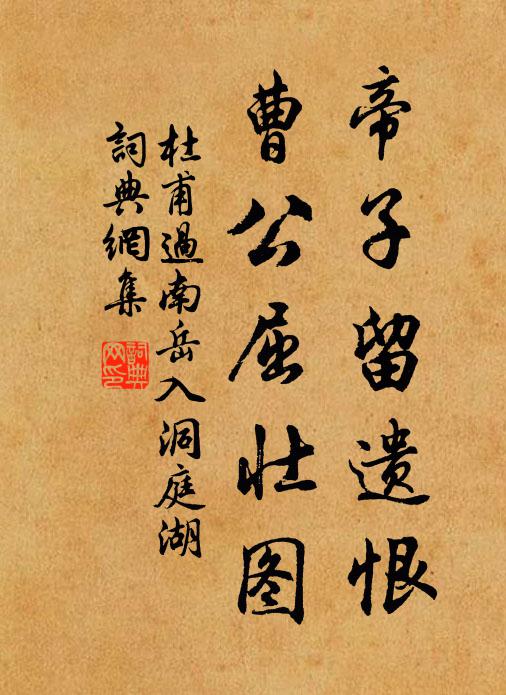 帝子留遗恨
曹公屈壮图
杜甫過南岳入洞庭湖
詞典網集
詞典網印